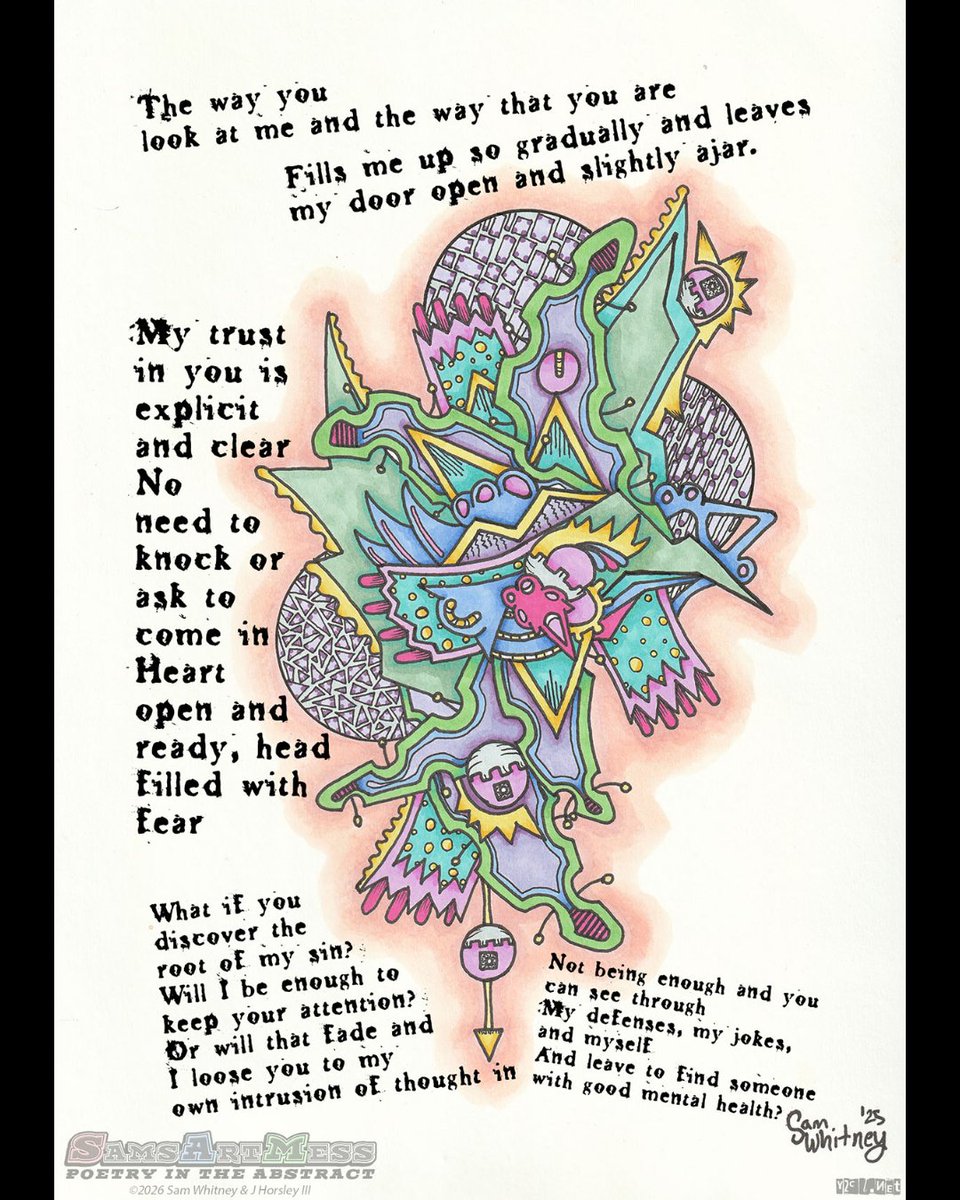 The way you
look at me and the way that you are
Fills me up so gradually and leaves
my door open and slightly ajar.
My trust
in you is
explicit
and clear
No
need to
knock or
ask to
come in
Heart
open and
ready, head
filled with
fear
What if you
discover the
root of my sin?
Will I be enough to
keep your attention?
Or will that fade and
I loose you to my
own intrusion of thought in
Not being enough and you
can see through
My defenses, my jokes,
and myself
And leave to find someone
with good mental health?
Sam Whitney '25
SamsArtMess
POETRY IN THE ABSTRACT
©2026 Sam Whitney & J Horsley III